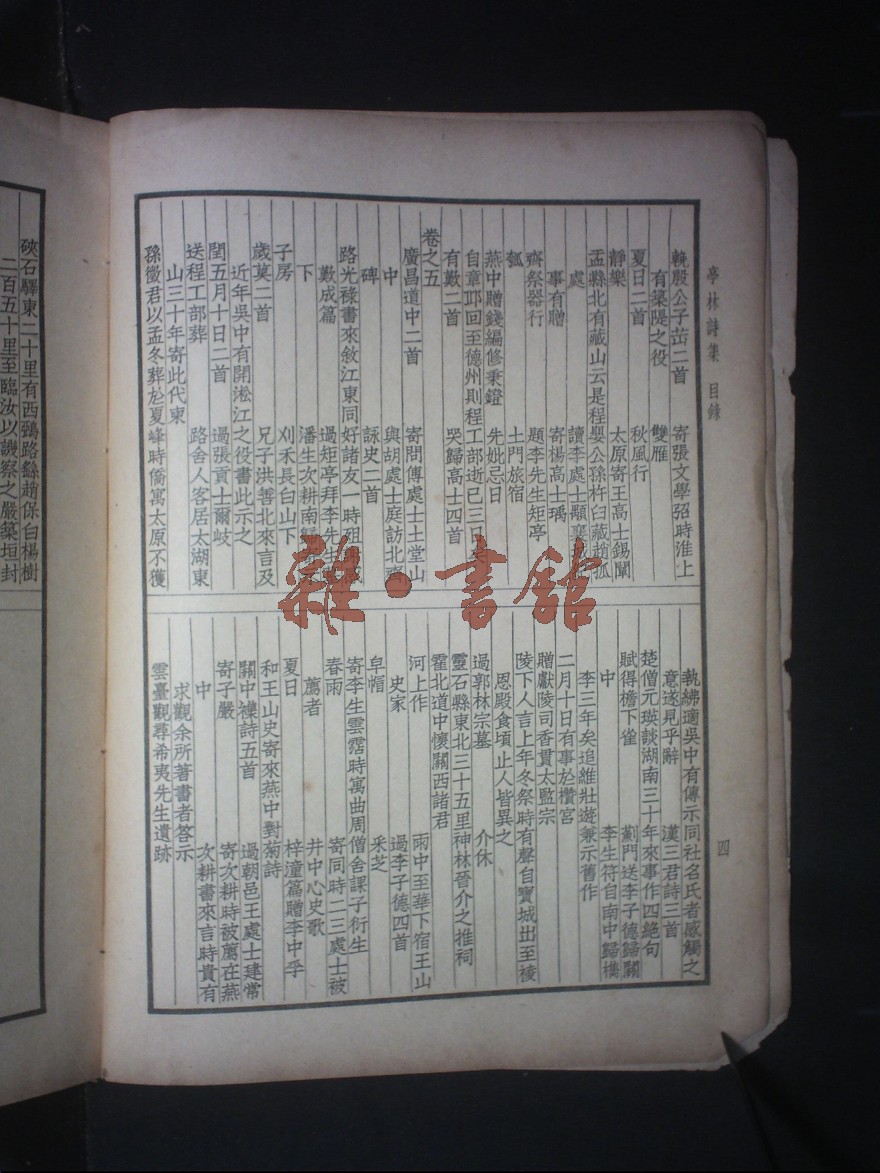 亭林詩集 目錄
四
輓殷公子岳二首 寄張文學弨時淮上
有築隄之役 雙雁
夏日二首 秋風行
靜樂 太原寄王高士錫闡
盂縣北有藏山云是程嬰公孫杵臼藏趙孤
處 讀李處士顒襄
事有贈 寄楊高士瑀
齋祭器行 題李先生矩亭
瓠 土門旅宿
燕中贈錢編修秉鐙 先妣忌日
自章邱回至德州則程工部逝已三日矣
有歎二首 哭歸高士四首
卷之五
廣昌道中二首 寄問傅處士土堂山
中 與胡處士庭訪北齊
碑 詠史二首
路光祿書來敘江東同好諸友一時徂謝感
歎成篇 過矩亭拜李先生
下 潘生次耕南歸
子房 刈禾長白山下
歲莫二首 兄子洪善北來言及
近年吳中有開淞江之役書此示之
閏五月十日二首 過張貢士爾岐
送程工部葬 路舍人客居太湖東
山三十年寄此代柬
孫徵君以孟冬葬於夏峰時僑寓太原不獲
執紼適吳中有傳示同社名氏者感觸之
意遂見乎辭 漢三君詩三首
楚僧元瑛談湖南三十年來事作四絕句
賦得檐下雀 薊門送李子德歸關
中 李生符自南中歸檇
李三年矣追維壯遊兼示舊作
二月十日有事於欑宮
贈獻陵司香貫太監宗
陵下人言上年冬祭時有聲自寶城出至祾
恩殿食頃止人皆異之
過郭林宗墓 介休
靈石縣東北三十五里神林晉介之推祠
霍北道中懷關西諸君
河上作 雨中至華下宿王山
史家 過李子德四首
皁帽 采芝
寄李生雲霑時寓曲周僧舍課子衍生
春雨 寄同時二三處士被
薦者 井中心史歌
夏日 梓潼篇贈李中孚
和王山史寄來燕中對菊詩
關中襍詩五首 過朝邑王處士建常
寄子嚴 寄次耕時被薦在燕
中 次耕書來言時貴有
求觀余所著書者答示
雲臺觀尋希夷先生遺跡
硤石驛東二十里有西鵶路繇趙保白楊樹
二百五十里至臨汝以譏察之嚴築垣封
雜·書館